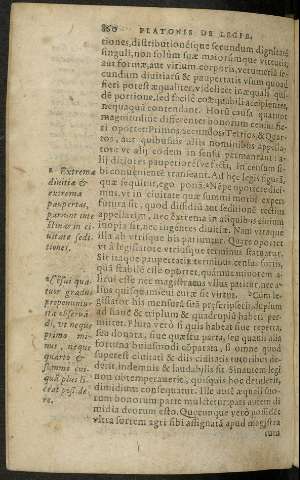 860 PLATONIS DE LEGIB.
tiones, distributionésque secundum dignitatē
singuli, non solùm suæ maiorúmque virtutis,
aut formæ, aut virium corporis, verumetiā se-
cundum diuitiarū & paupertatis vsum quoad
fieri potest æqualiter, videlicet inæquali qui-
dē portione, sed facilè coæquabili accipientes,
nequaquā contendant. Horū causa quatuor
magnitudine differentes honorum census fie-
ri oportet: Primos, secundos, Tertios, & Quar-
tos, aut quibusuis aliis nominibus appella-
tos: vt alij eodem in sensu permaneant: a-
lij ditiores pauperiorésve facti, in censum si-
bi conuenientē transeant. Ad hęc legis figurā,
quæ sequitur, ego ponā. Nēpe oportere dici-
mus, vt in ciuitate quæ summi morbi expers
futura sit, quod distantia aut seditionē rectius
appellarim, nec extrema in
inopia sit, nec ingentes diuitiæ. Nam vtraque
illa ab vtrisque his pariuntur. Quare oportet
vt à legislatore vtriusque terminus statuatur.
Sit itaque paupertatis terminus census sortis,
quā stabilē esse oportet, quam
licui esse nec magistratus vllus patitur, nec a-
lius quisquam cui curæ sit virtus. Cum le-
gislator his mensurā præfecerit,
ad hanc & triplum & quadruplū haberi per-
mittet. Plura verò si quis habeat siue reperta,
seu donata, siue quæstu parta, seu quauis alia
fortuna huiusmodi cōparata, si omne quod
superest ciuitati & diis ciuitatis tutoribus de-
derit, indemnis & laudabilis sit. Sin autem legi
non obtemperauerit, quisquis hoc detulerit,
dimidium consequatur. Ille autē
bonorum parte mulctetur: pars autem di
midia deorum esto. Quęcunque verò possidet
vltra sortem agri sibi assignatā apud magistra
tum
Extrema
diuitiæ &
extrema
paupertas,
pariunt inte
stinas in ci-
uitate sedi-
tiones.
Cēsus qua-
tuor gradus
proponuntur
ita obserua-
di, vt neque
primo mi-
nus, neque
quarto &
summo cui-
quā plus li-
ceat possi-de-
re.